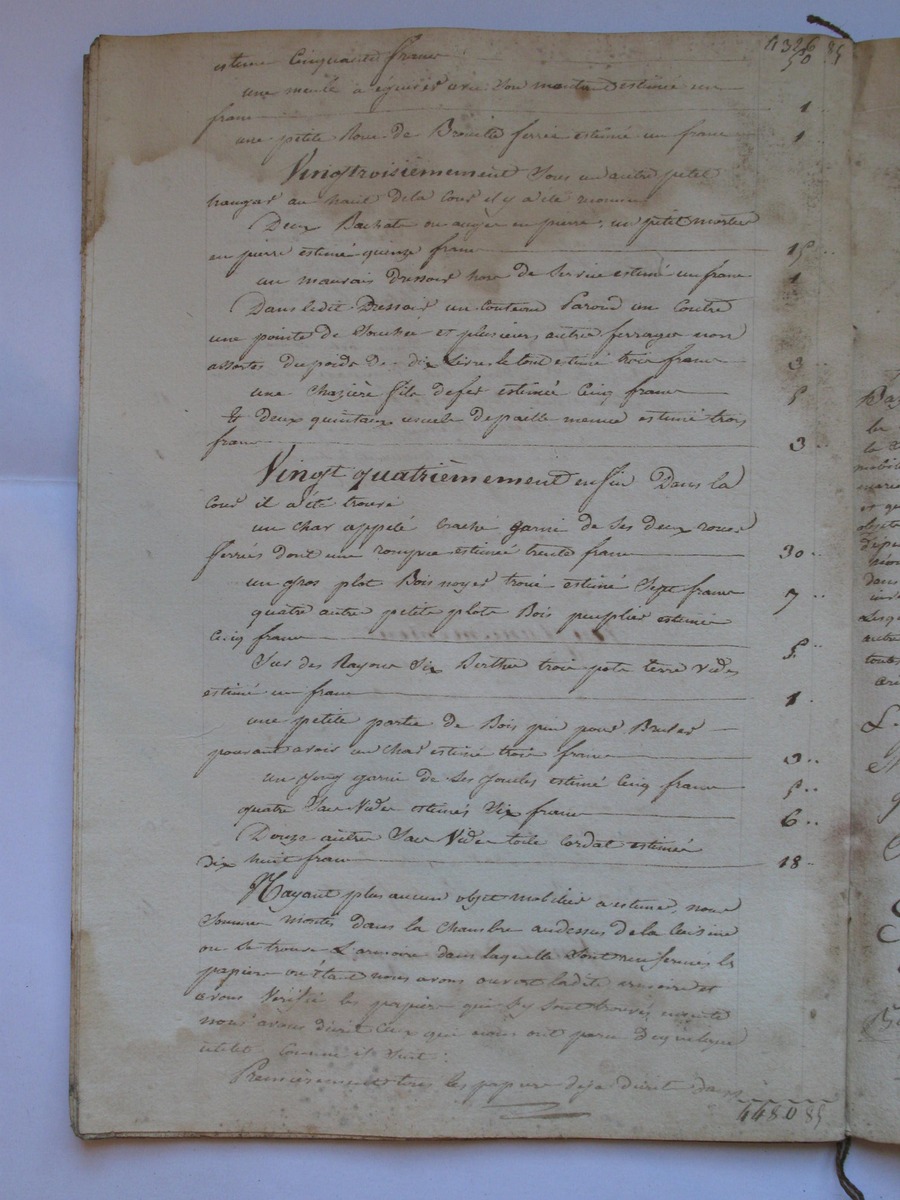 4326 85
estimée Cinquante francs 50
une meule à éguiser avec son montant estimée un
franc 1
une petite Roue de Brouette ferrée estimée un franc 1
Vingtroisièmement Sous un autre petit
hangar au haut de la Cour il y a été reconnu
Deux Bachats ou auges en pierre, un petit mortier
en pierre estimé quinze francs 15
un mauvais Dressoir hors de Service estimé un franc 1
Dans ledit Dressoir un Couteau Paroir un Coutre
une pointe de et plusieurs autres ferrages non
assortis du poids de dix Livres le tout estimé trois francs 3
une Chazière fils de fer estimée Cinq francs 5
Et deux quintaux usuels de paille menue estimé trois
francs 3
Vingt quatrièmement enfin Dans la
Cour il a été trouvé
un char appelé garni de Ses deux roues
ferrées dont une rompue estimée trente francs 30
un gros plot Bois noyer trouvé estimé Sept francs 7
quatre autre petits plots Bois peuplier estimés
Cinq francs 5
Sur des Rayons Six Berthes trois pots terre vides
estimé un franc 1
une petite partie de Bois pin pour Bruler
pouvant avoir un Char estimé trois francs 3
un joug garni de Ses Joucles estimé Cinq francs 5
quatre Sacs Vides estimés Six francs 6
Douze autre Sacs Vides toile Cordat estimés
dix huit francs 18
N'ayant plus aucun objet mobilier a estimer, nous
Sommes montés dans la Chambre audessus de la Cuisine
ou Se trouve L'armoire dans laquelle Sont renfermés les
papiers ou étant nous avons ouvert ladite armoire et
avons Vérifié les papiers qui S'y sont trouvés, ensuite
nous avons décrit Ceux qui nous ont paru De quelque
utilité Comme il Suit :
Premièrement tous les papiers déjà décrit dans
4480 85